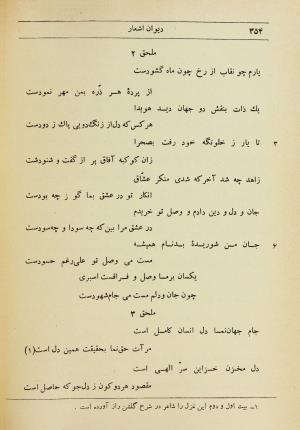 ۳۵۴
دیوان اشعار
ملحق ۲
یارم چو نقاب از رخ چون ماه گشودست
از پردهٔ هر ذره بمن مهر نمودست
یك ذات بنقش دو جهان دید هویدا
هرکس که دل از زنگ دویی پاك ز دودست
۳ تا یار ز خلوتگه خود رفت بصحرا
زان کوکبه آفاق پر از گفت و شنودست
زاهد چه شد آخر که شدی منکر عشاق
انکار تو در عشق بما گو ز چه بودست
جان و دل و دین دادم و وصل تو خریدم
در عشق مرا بین که چه سودا و چه سودست
۶ جان من شوریدهٔ بدنام همیشه
مست می وصل تو علی رغم حسودست
یکسان بر ما وصل و فراقست اسیری
چون جان و دلم مست می جام شهودست
ملحق ۳
جام جهان نما دل انسان کامل است
مرآت حق نما بحقیقت همین دل است (۱)
دل مخزن خزاین سر الهی است
مقصود هر دو کون ز دل جو که حاصل است
۱ـ بیت اول و دوم این غزل را شاعر در شرح گلشن راز آورده است .